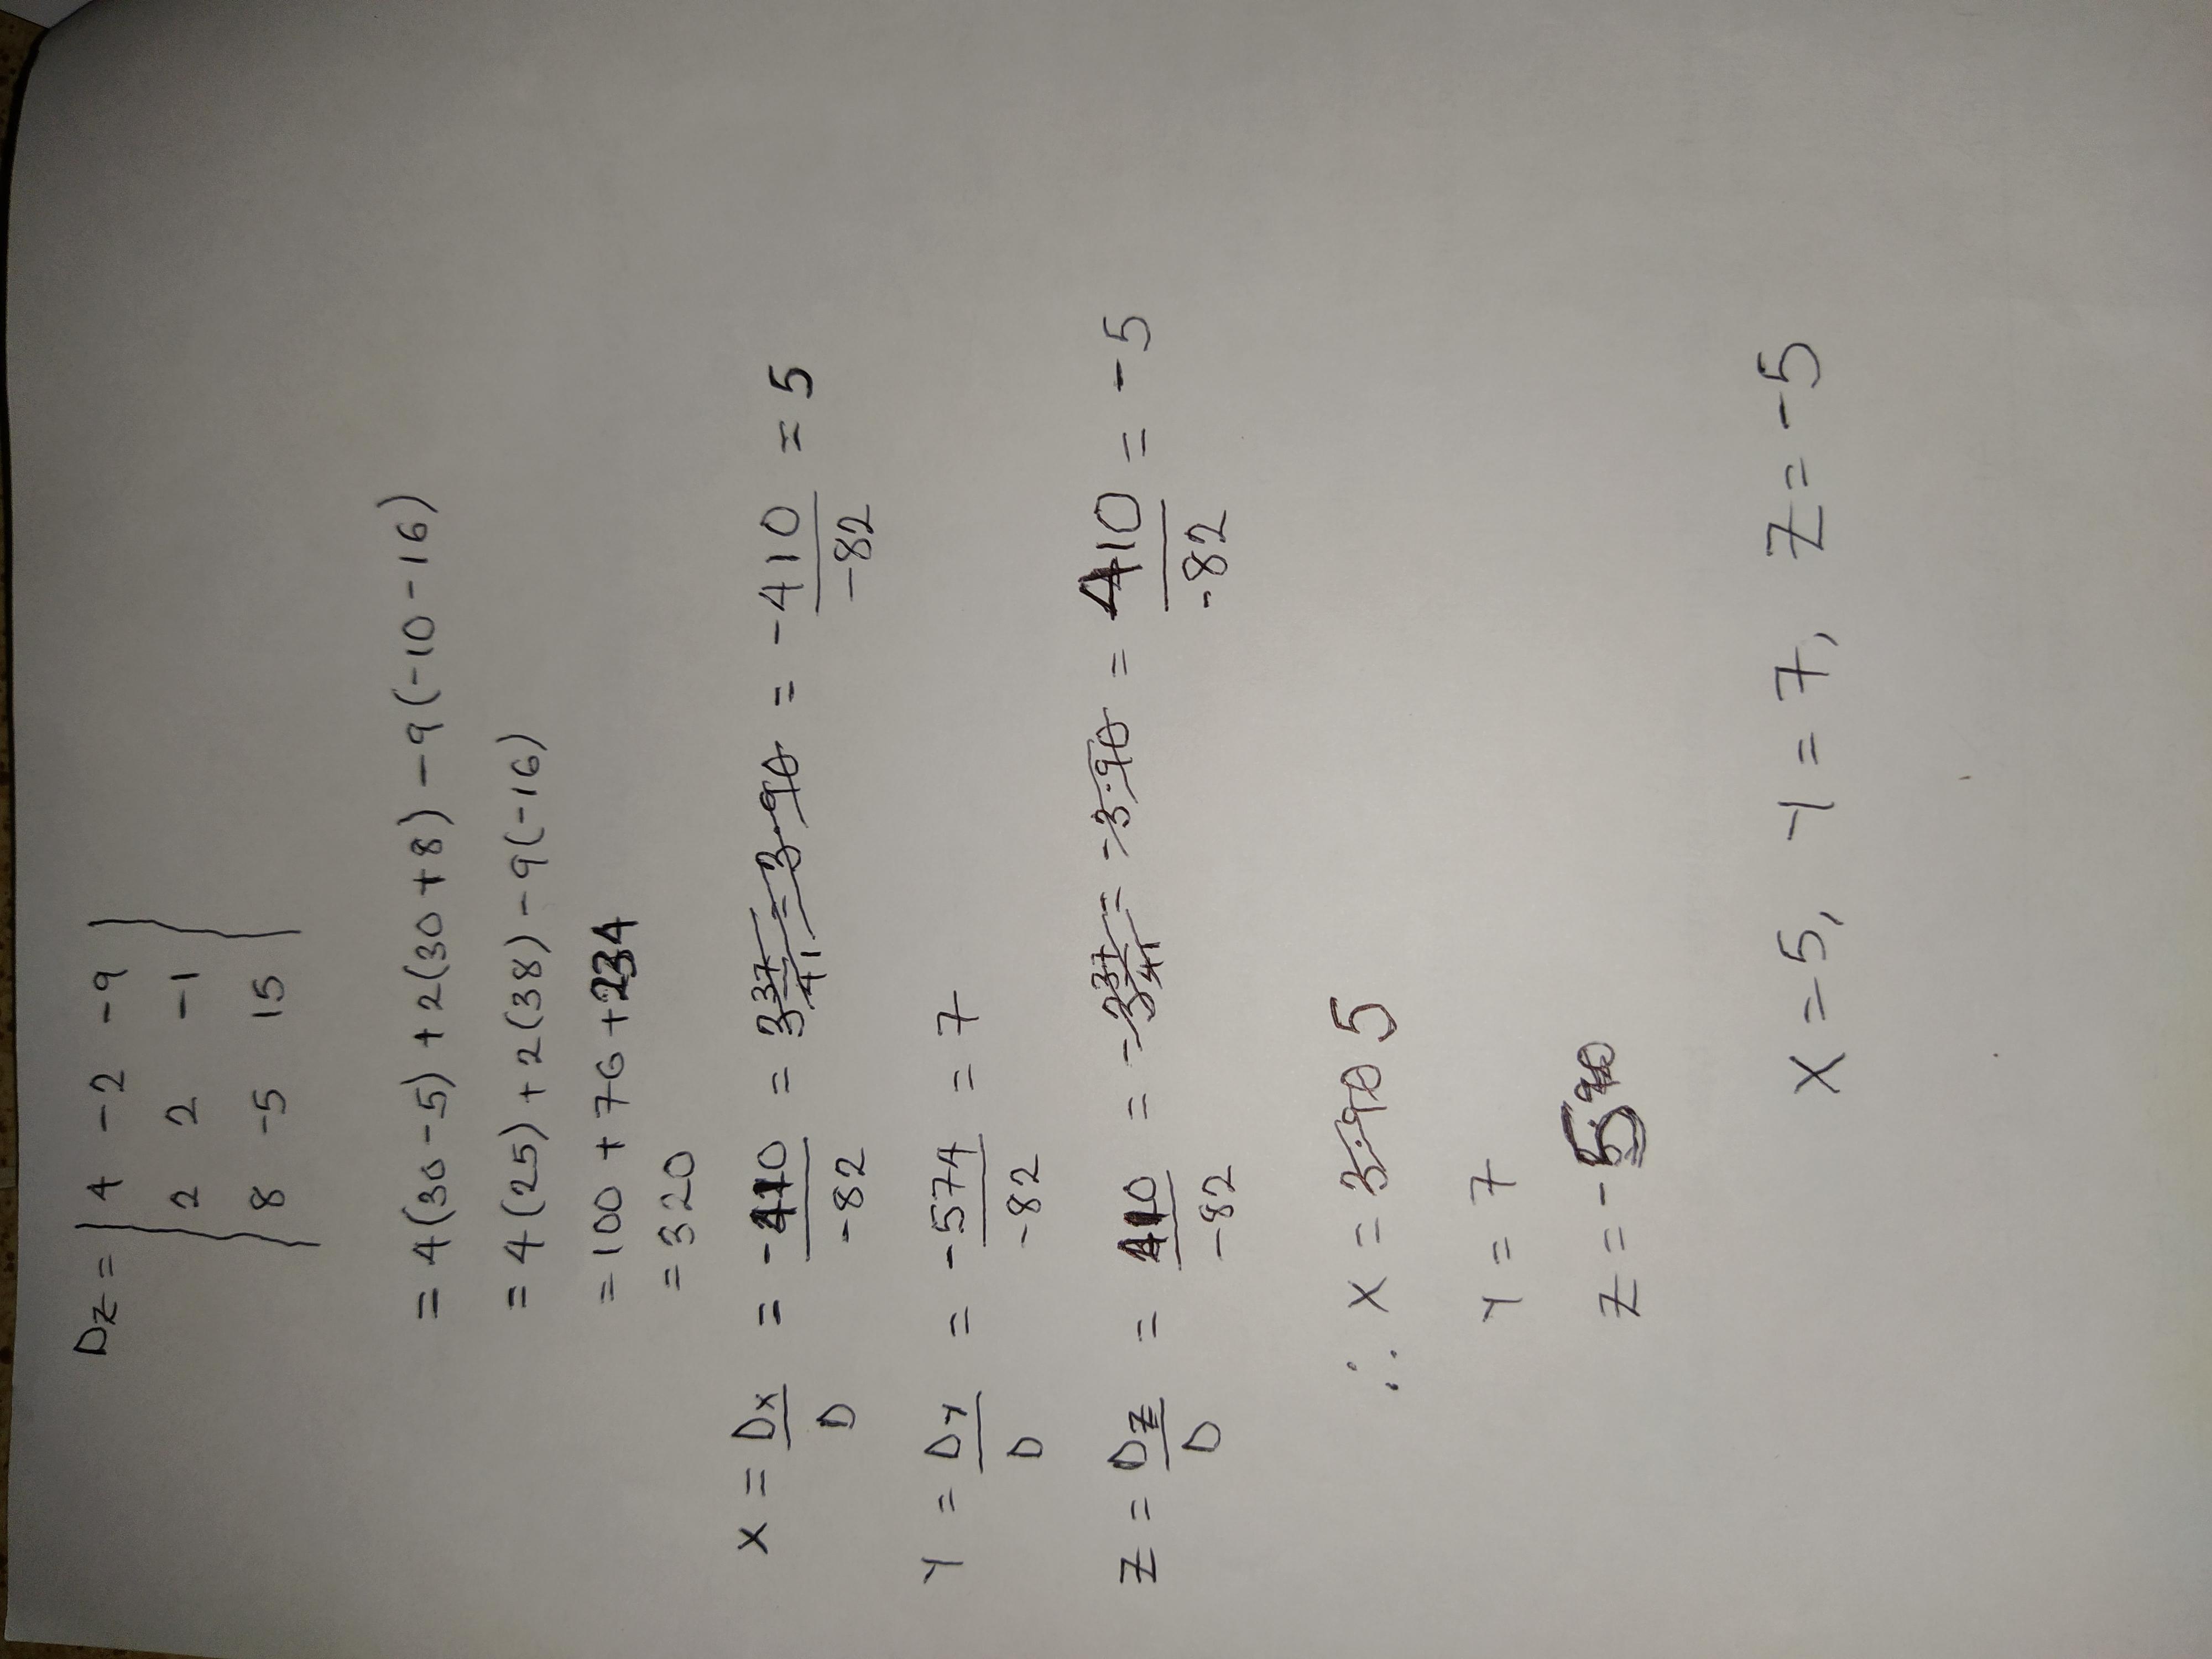 Dz = | 4 -2 -9 |
2 2 -1
8 -5 15
= 4(30-5) + 2(30+8) - 9(-10-16)
= 4(25) + 2(38) - 9(-16)
= 100 + 76 + 234
= 320
X = Dx/D = -410/-82 = 3 37/41 = 3.90 = -410/-82 = 5
Y = Dy/D = -574/-82 = 7
Z = Dz/D = 410/-82 = -3 37/41 = -3.90 = 410/-82 = -5
∴ X = 3.90 5
Y = 7
Z = -5
X = 5, Y = 7, Z = -5